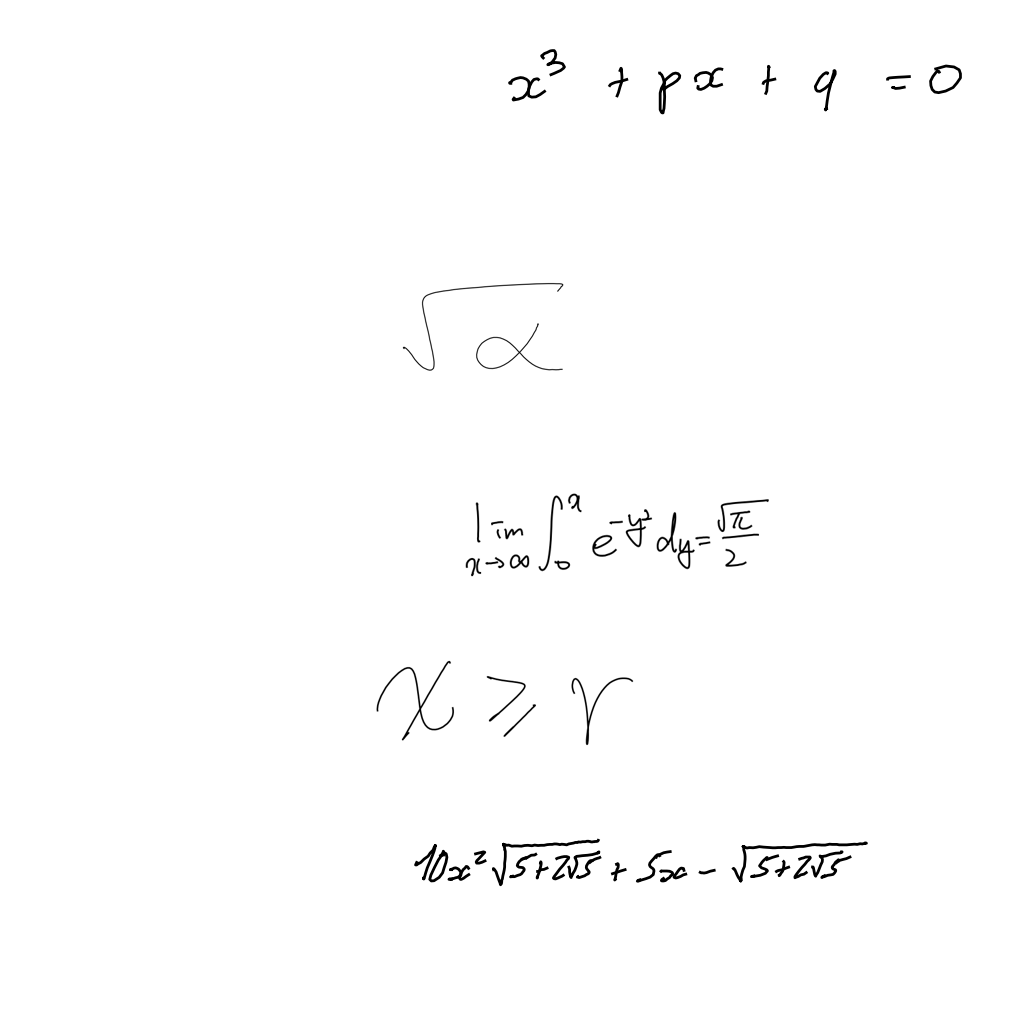 x³ + px + q = 0
√α
lim_{x→∞} ∫₀ˣ e^{-y²} dy = √π/2
x ≥ r
10x²√(5+2√5) + 5x - √(5+2√5)